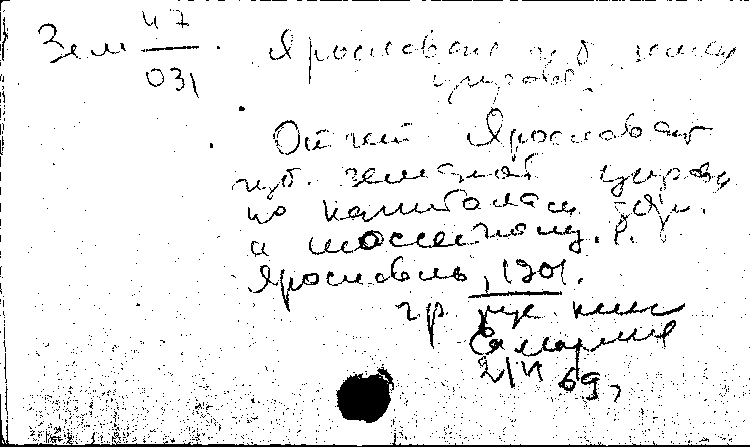 Зем 47/031. Ярославская губ. земск.
управа.
Отчет Ярославск.
губ. земской управы
по капиталам дор.
и шоссейному.
Ярославль, 1901.
гр рук. кни
2/VI 69,